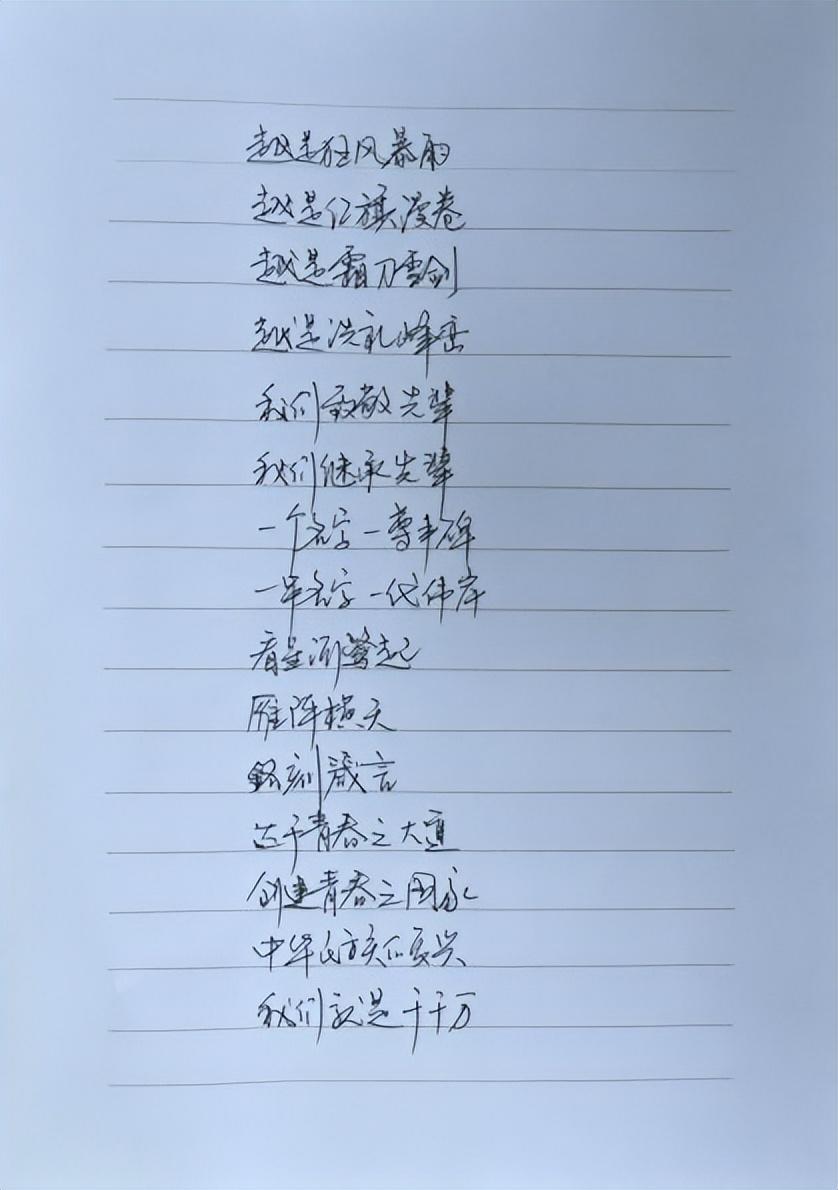 越是狂风暴雨
越是红旗漫卷
越是霜刀雪剑
越是洗礼峰峦
我们致敬先辈
我们继承先辈
一个名字一尊丰碑
一串名字一代伟岸
看星河鹭起
雁阵横天
铭刻箴言
达于青春之大道
创建青春之国家
中华民族的复兴
我们就是千千万